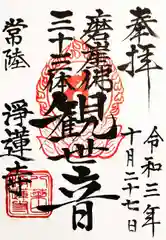 奉拝
令和三年
十月二十七日
磨崖佛
三十三体
観世音
常陸
浄蓮寺